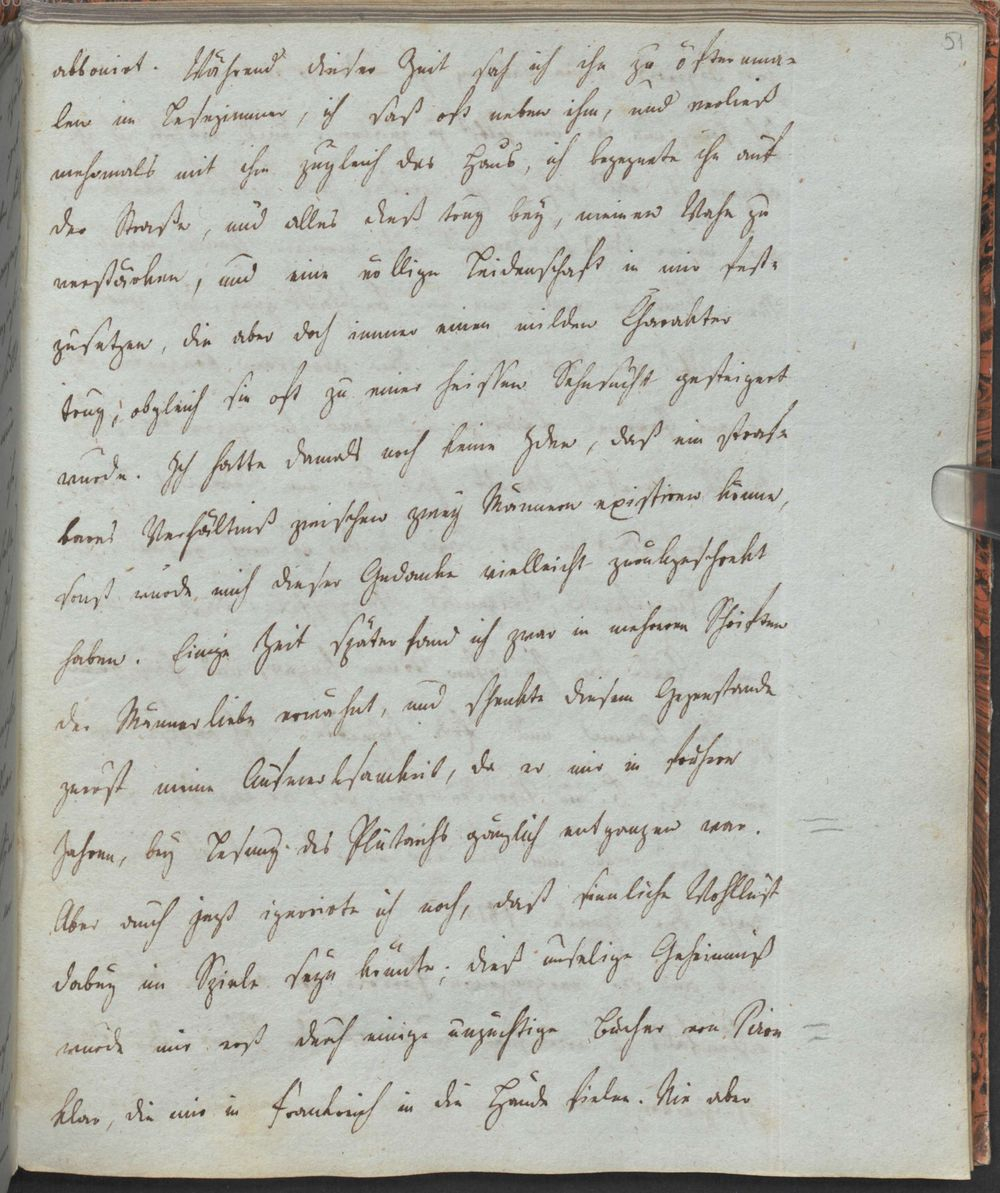 51
abbonirt. Während dieser Zeit sah ich ihn zu öfternma-
len im Lesezimmer, ich saß oft neben ihm, und verließ
mehrmals mit ihm zugleich das Haus, ich begegnete ihn auf
der Straße, und alles dieß trug bey, meinen Wahn zu
verstärken, und eine völlige Leidenschaft in mir fest-
zusetzen, die aber doch immer einen milden Charakter
trug, obgleich sie oft zu einer heissen Sehnsucht gesteigert
wurde. Ich hatte damals noch keine Idee, daß ein straf-
bares Verhältniß zwischen zwey Männern existiren könne,
sonst würde mich dieser Gedanke vielleicht zurückgeschrekt
haben. Einige Zeit später fand ich zwar in mehreren Schriften
der Männerliebe erwähnt, und schenkte diesem Gegenstande
zuerst meine Aufmerksamkeit, da er mir in frühern
Jahren, bey Lesung des Plutarchs gänzlich entgangen war.
Aber auch jezt ignorirte ich noch, daß sinnliche Wohllust
dabey im Spiele seyn könnte; dieß unselige Geheimniß
wurde mir erst durch einige unzüchtige Bücher von Piron
klar, die mir in Frankreich in die Hände fielen. Nie aber